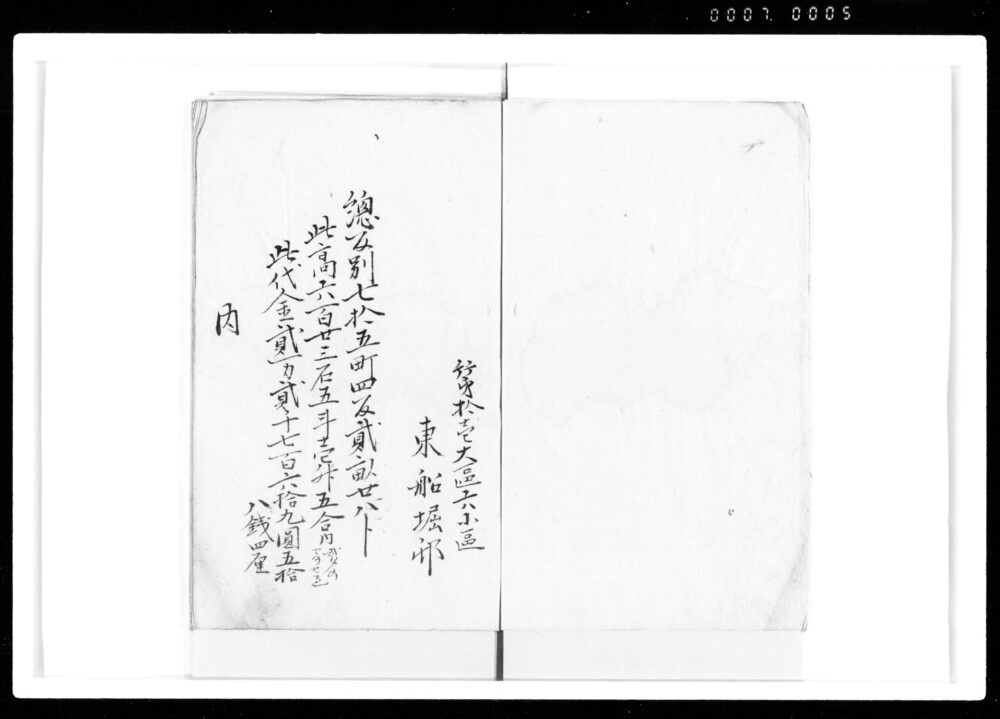 0007. 0005
第拾壱大區六小區
東船堀邨
總反別七拾五町四反貳畝廿八卜
此高六百廿三石五斗壱升五合
此代金貳万貳千七百六拾九圓五拾
八銭四厘
内